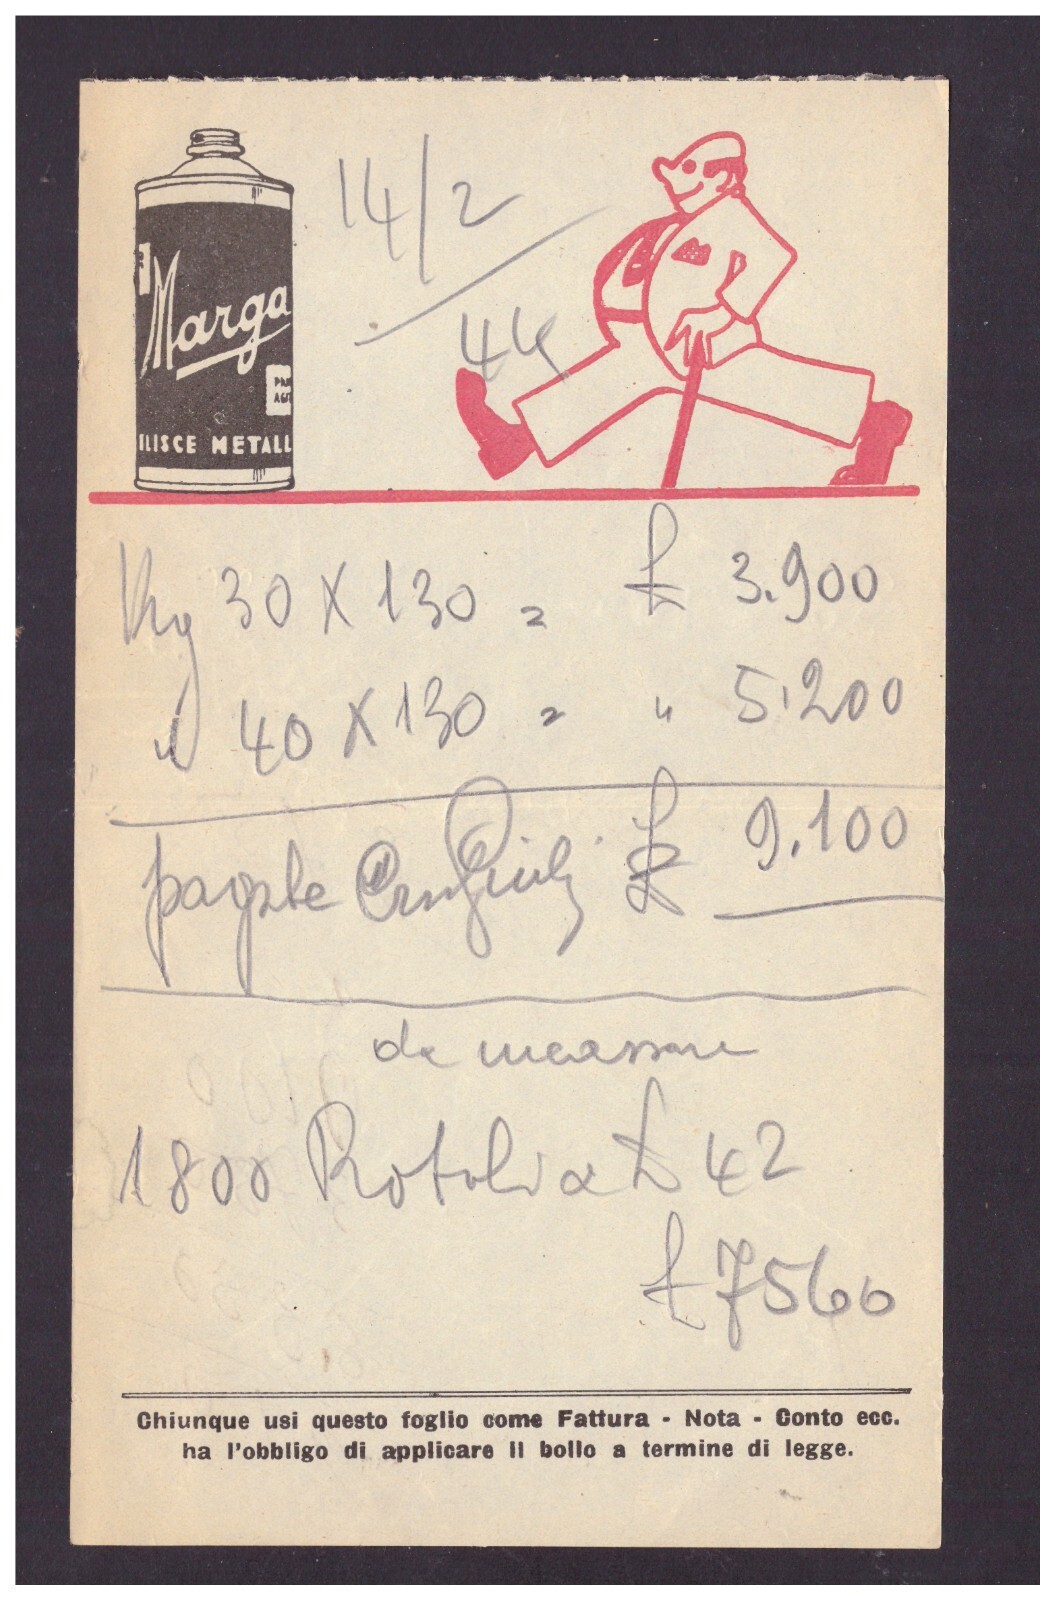 14/2
44
Marga
ILISCE METALL
Kg 30 X 130 = £ 3.900
" 40 X 130 = " 5.200
pagate £ 9.100
da incassare
1800 Rotoli a £ 42
£ 7560
Chiunque usi questo foglio come Fattura - Nota - Conto ecc.
ha l'obbligo di applicare il bollo a termine di legge.